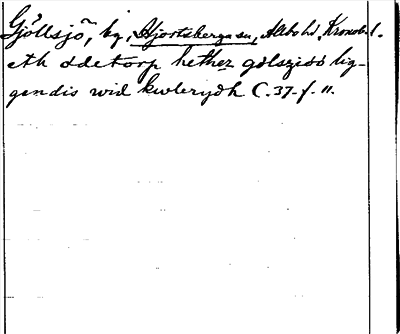 Gjöllsjö, by, Hjortsberga sn, Allbo hd, Kronob. l.
eth ödetorp hether gølsziöö lig-
gendis wid kwlerydh C. 37. f. 11.